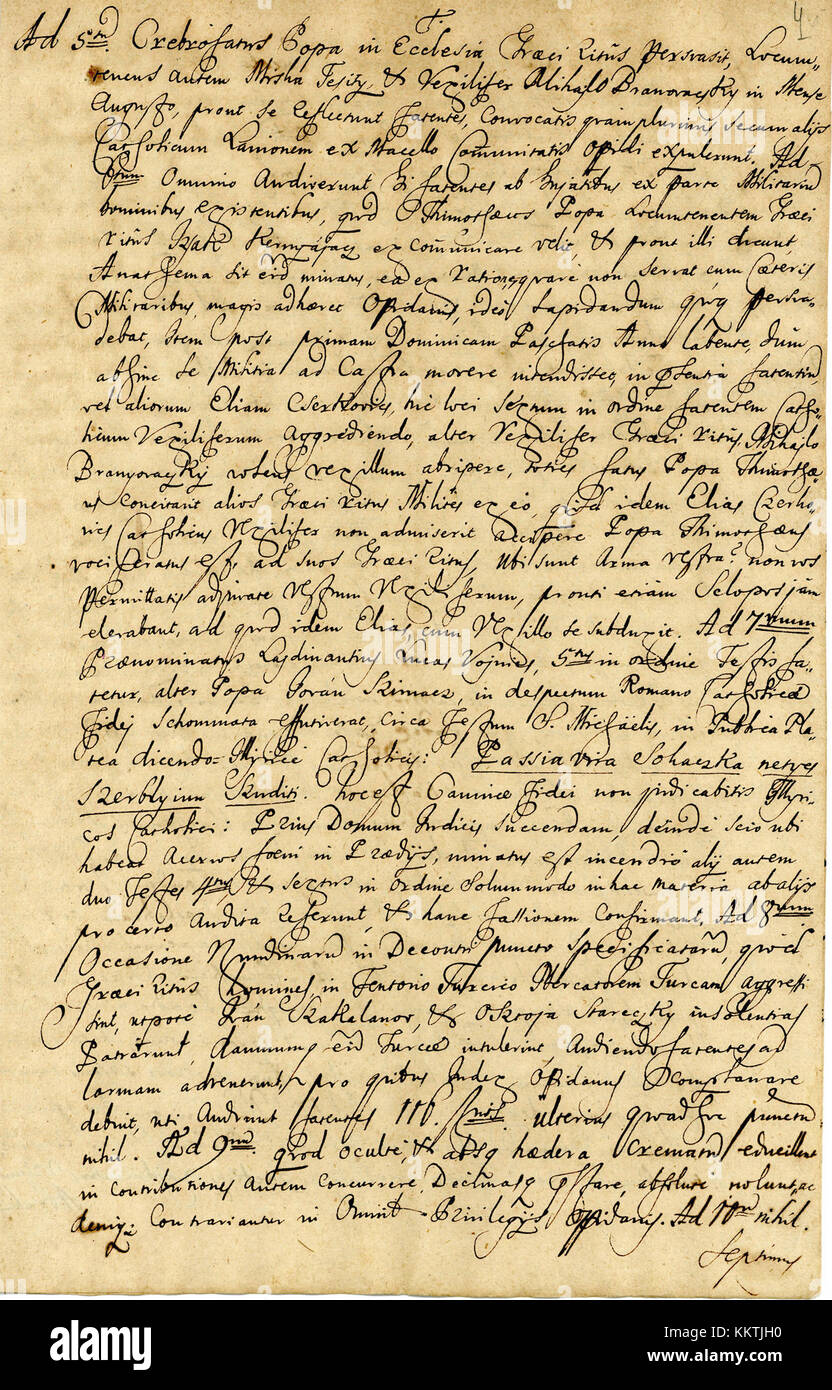 4
Ad 5tum Crebrofatus Popa in Ecclesia Græci Ritûs persvasit, Locum-
tenens autem Misha Tesity, & Vexilifer Mihajlo Branovaczky in Mense
Augusto, prout se reflectunt fatentes, Convocatis quam plurimis secum alijs
Catholicum Lanionem ex Macello Com̃unitatis Opidi expulerunt. Ad
6tum Omnino Audiverunt hi fatentes ab ex parte Militarium
hominibus existentibus, quod Thimothæus Popa Locumtenentem Græci
ritûs ex com̃unicare velit, & prout illi dicunt,
Anathema sit eid minatus, ea ex ratione quare non servat cum Cæteris
Militaribus, magis adhæret Opidanis, ideo Lapidandum persva-
debat, Item post primam Dominicam Paschatis Anni labente, dum
abhinc se Militia ad Castra movere intendisset, in fatentium
vel aliorum Eliam hic loci Septum in ordine fatentem Catho-
licum Vexiliferum Aggrediendo, alter Vexilifer Græci ritûs, Mihajlo
Branovaczky volens vexillum abripere, toties fatus Popa Thimothæ-
us Concitavit alios Græci ritus Milites ex eo, quod idem Elias
Catholicus Vexilifer non admiserit accipere Popa Thimothæus
vociferatus est, ad suos Græci Ritus, Ubi sunt Arma vestra? non vos
permittatis vestrum Vexiliferum, prouti etiam Sclopos jam
elevabant, ad quod idem Elias, cum Vexillo se subduxit. Ad 7timum
Prænominatus Lucas Vojnics, 5tus in ordine Testis fa-
tetur, alter Popa Gován in despectum Romano Catholicæ
Fidei Schommata effutiverat, Circa Festum S. Michaëlis, in Publica Pla-
tea dicendo Illyricis Catholicis: Passia vira Sohaczka neties
Szerblyim Szuditi. hoc est Caninæ Fidei non judicabitis Illyri-
cos Catholici: Prius Domum Judicis succendam, deinde scio ubi
habeat Acervos foeni in Prædijs, minatus est incendio alij autem
duo Testes 4tus & sextus in ordine solummodo in hac materia ab alijs
pro certo Audita referunt, & hanc fassionem confirmant. Ad 8vum
Occasione Nundinarum in Deeout: puncto specificatarum, quod
Græci Ritûs homines, in Tentorio Turcico Mercatorem Turcam aggressi
sint, utpote & Ostoja Stareczky insolentias
Patrarunt, damnumq eid Turcæ intulerint, Audiendo fatentes ad
larmam advenerunt, pro quibus Judex Opidanus
debuit, uti Audiunt fatentes 116. ulterius quoad hoc punctum
nihil. Ad 9num quod occulte, & absq hædera Crematum educillent
in Contributiones autem Concurrere, Decimasq absolute nolunt, ac
deniq Contrariantur in Omnib Privilegijs Opidanis. Ad 10mum nihil.
Septimus
alamy
Image ID: KKTJH0
www.alamy.com